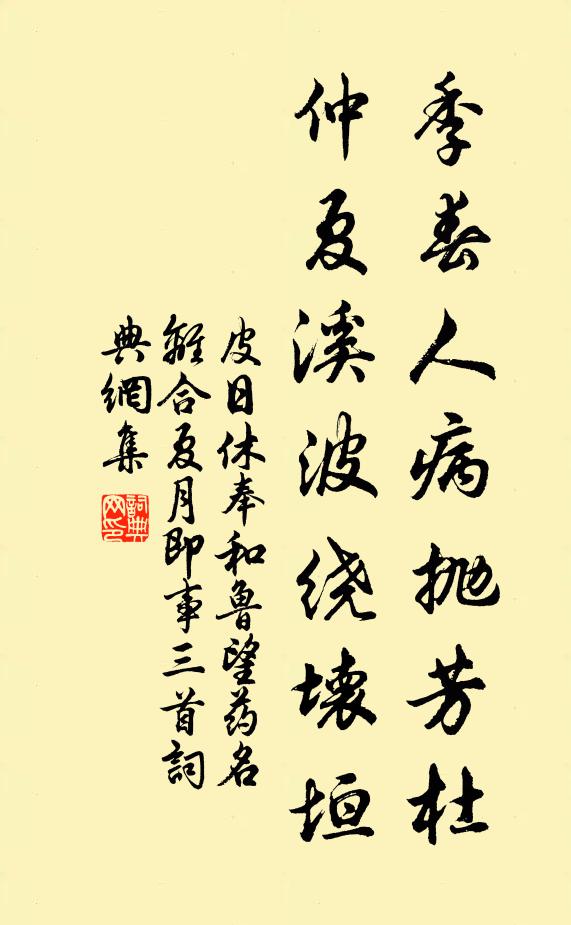 季春人病抛芳杜
仲夏溪波绕壊垣
皮日休奉和鲁望药名
離合夏月即事三首詞
典網集
詞典网印